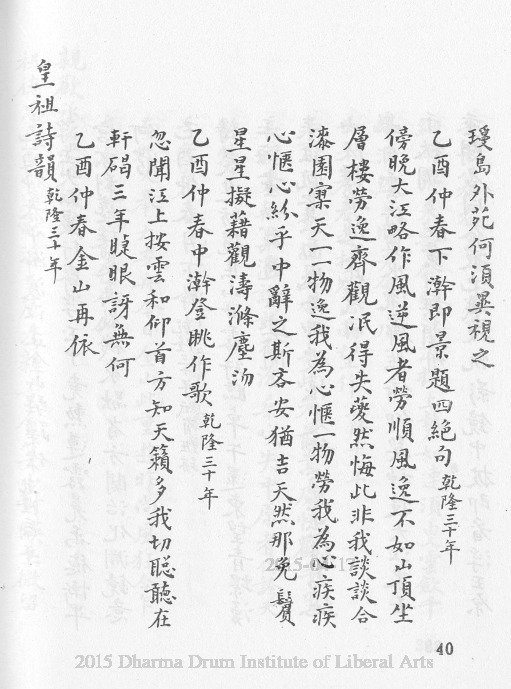 瑷島外苑何須異視之
乙酉仲春下澣即景題四絕句 乾隆三十年
傍晚大江略作風逆風者勞順風逸不如山頂坐
層樓勞逸齊觀泯得失蘧然悔此非我談談合
漆園寥天一一物逸我為心愜一物勞我為心疾疾
心愜心紛乎中辭之斯吝安猶吉天然那免鬢
星星擬藉觀濤滌塵沕
乙酉仲春中澣登眺作歌 乾隆三十年
忽聞江上按雲和仰首方知天籟多我切聰聽在
軒碣三年睫眼訝無何
乙酉仲春金山再依
皇祖詩韻 乾隆三十年
40
2015 Dharma Drum Institute of Liberal Arts